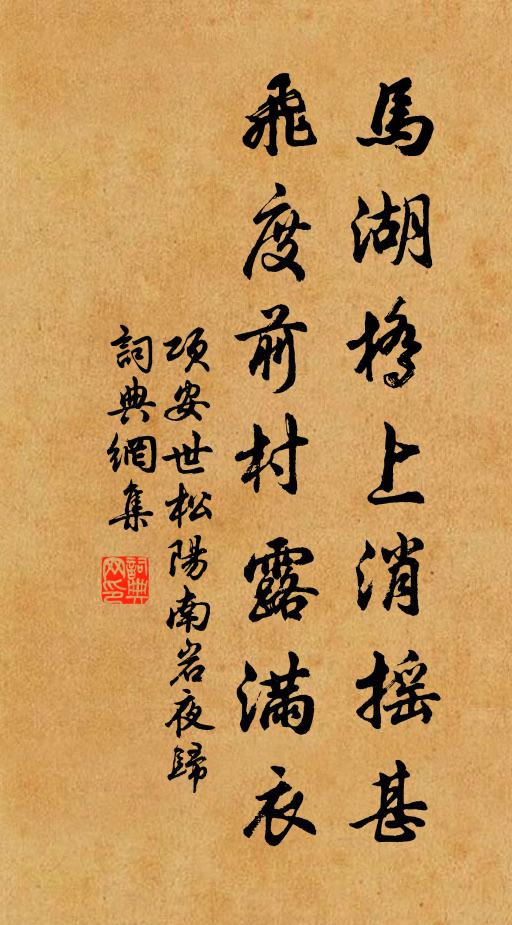 馬湖橋上消搖甚
飛度前村露滿衣
項安世松陽南岩夜歸
詞典網集
詞典网印